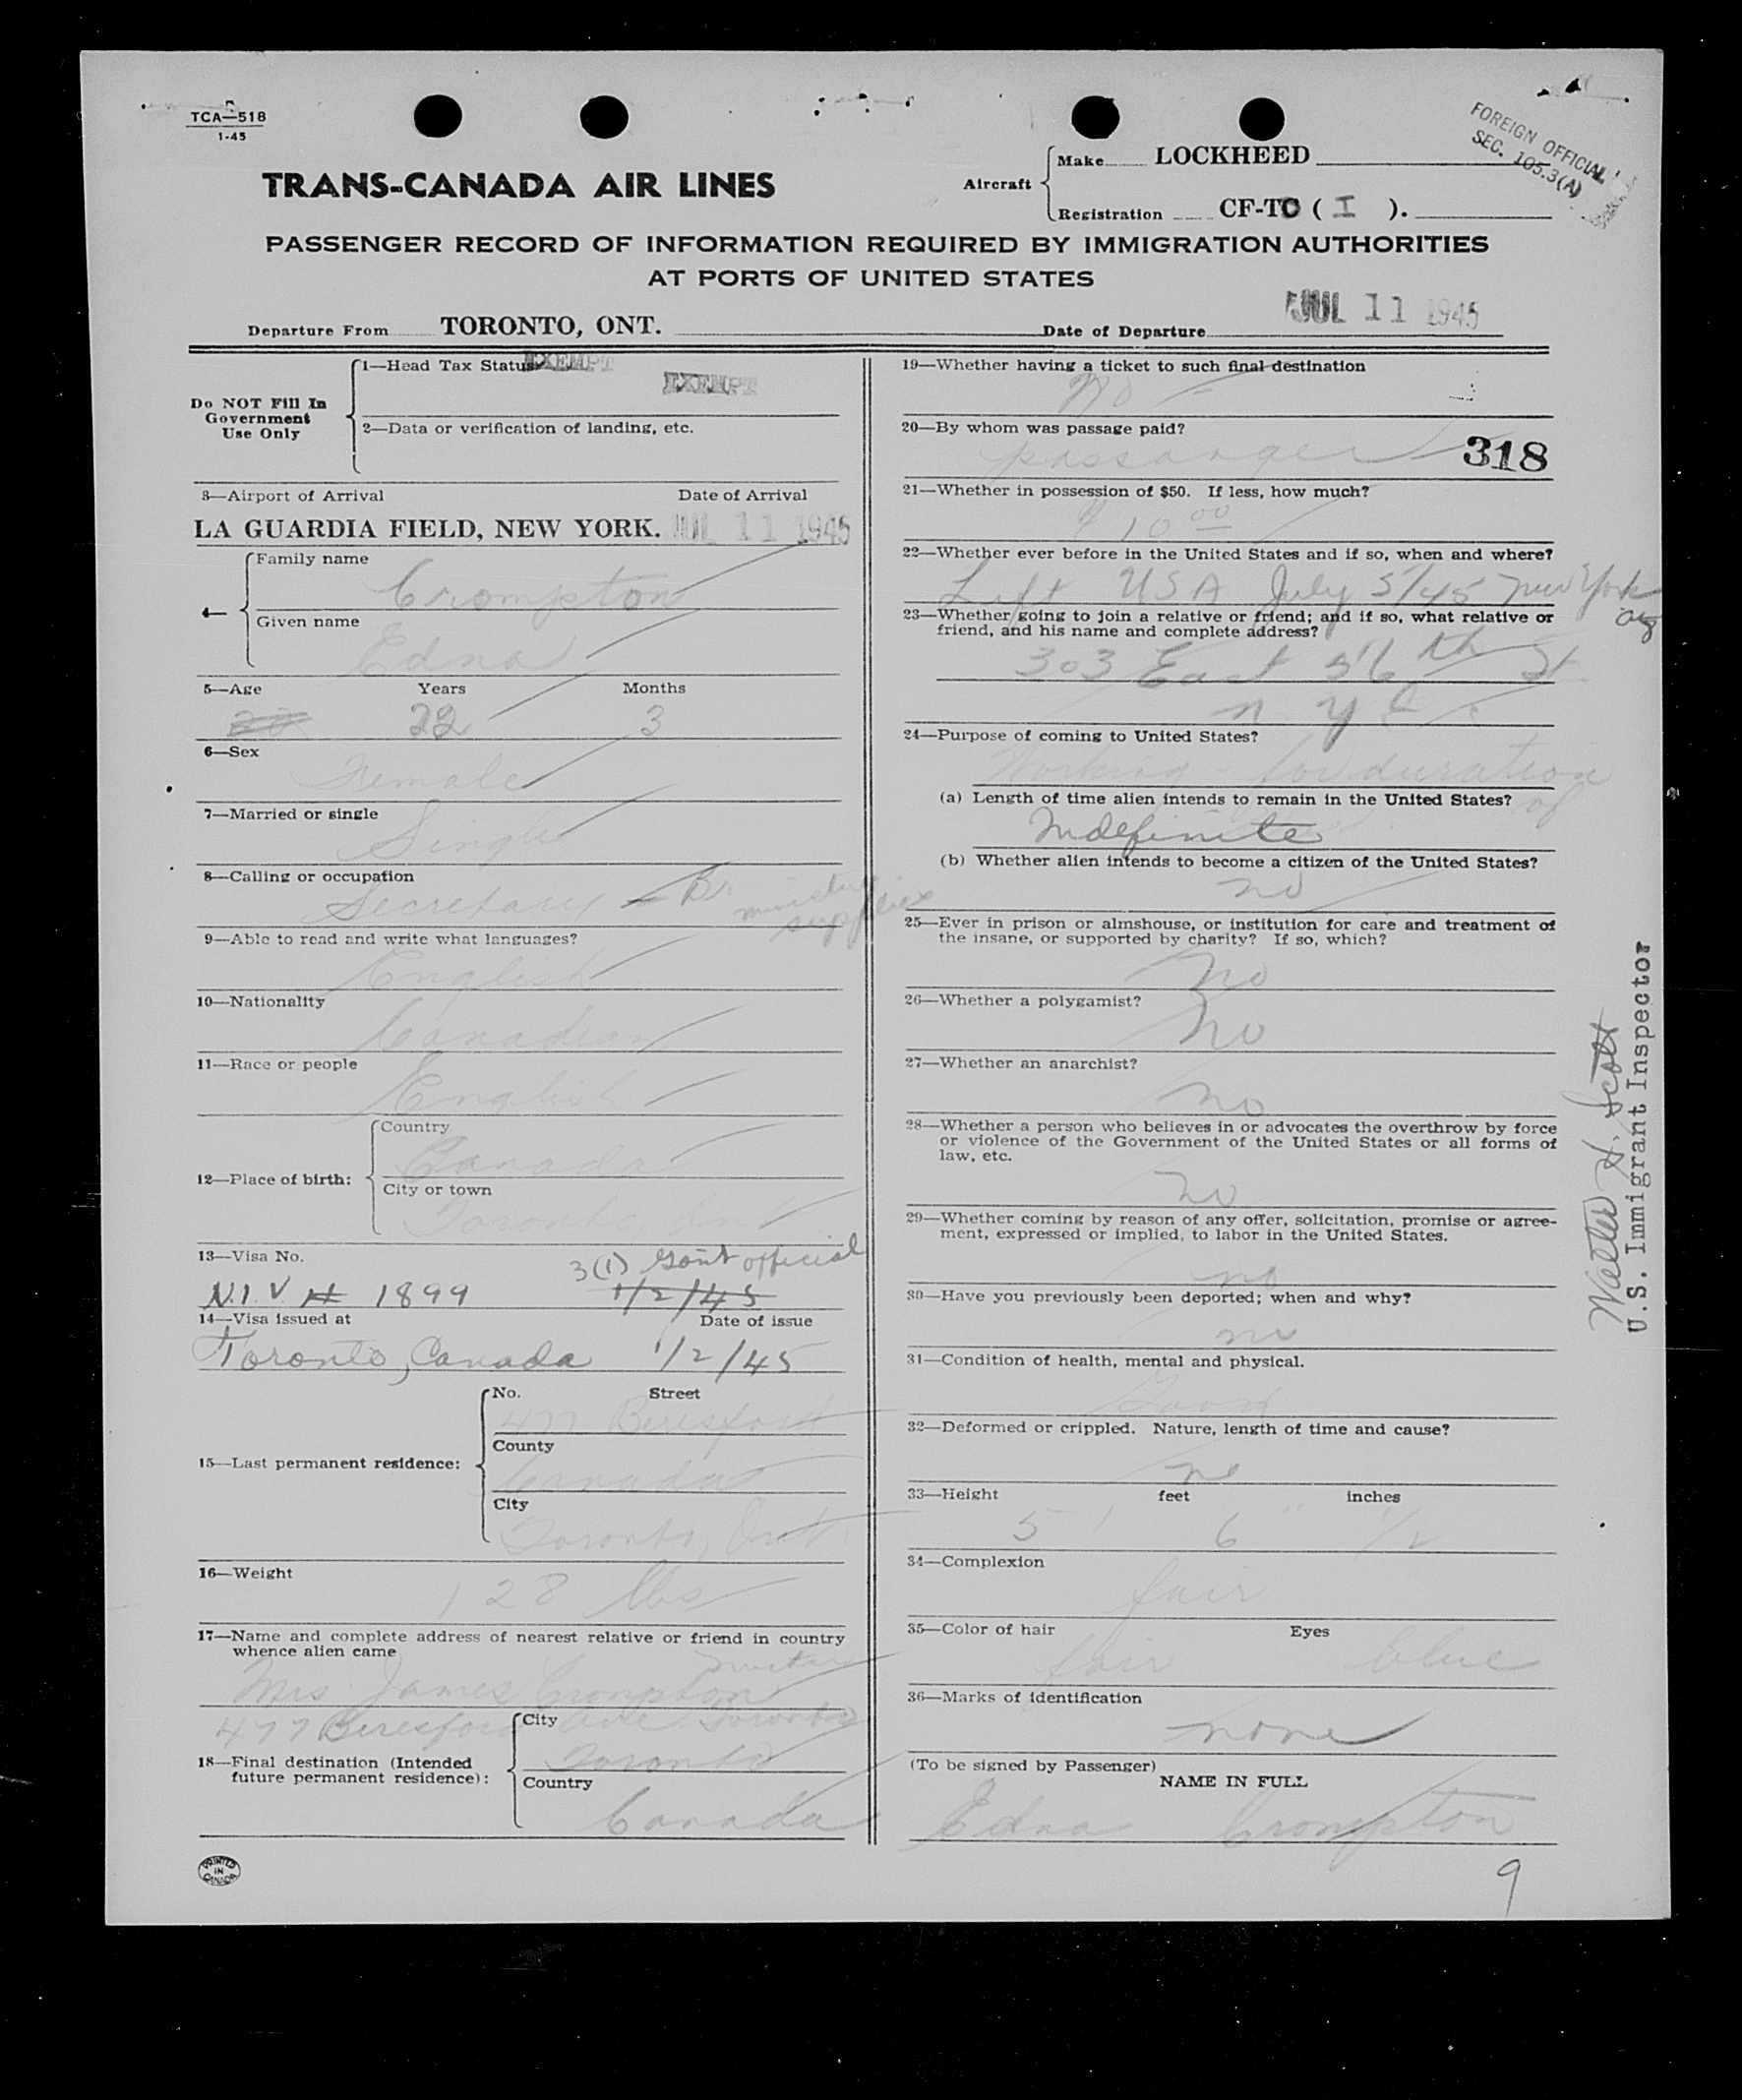 TCA—518
1-45
FOREIGN OFFICIAL
SEC. 105.3(A)
TRANS-CANADA AIR LINES
Aircraft
Make LOCKHEED
Registration CF-TC ( I ).
PASSENGER RECORD OF INFORMATION REQUIRED BY IMMIGRATION AUTHORITIES
AT PORTS OF UNITED STATES
Departure From TORONTO, ONT. Date of Departure JUL 11 1945
Do NOT Fill In
Government
Use Only
1—Head Tax Status EXEMPT
EXEMPT
2—Data or verification of landing, etc.
3—Airport of Arrival Date of Arrival
LA GUARDIA FIELD, NEW YORK. JUL 11 1945
4—
Family name
Crompton
Given name
Edna
5—Age Years Months
22 3
6—Sex
Female
7—Married or single
Single
8—Calling or occupation
Secretary - Br
supplies
9—Able to read and write what languages?
English
10—Nationality
Canadian
11—Race or people
English
12—Place of birth:
Country
Canada
City or town
Toronto
13—Visa No. 3(1) Govt official
N.I.V # 1899 1/2/45
14—Visa issued at Date of issue
Toronto, Canada 1/2/45
15—Last permanent residence:
No. Street
477 Beresford
County
Canada
City
Toronto, Ont.
16—Weight
128 lbs
17—Name and complete address of nearest relative or friend in country
whence alien came
Mrs James Crompton
477 Beresford Ave Toronto
18—Final destination (Intended
future permanent residence):
City
Toronto
Country
Canada
PRINTED
IN
CANADA
19—Whether having a ticket to such final destination
No
20—By whom was passage paid?
passenger
318
21—Whether in possession of $50. If less, how much?
$10 00
22—Whether ever before in the United States and if so, when and where?
Left USA July 5/45 New York
23—Whether going to join a relative or friend; and if so, what relative or
friend, and his name and complete address?
303 East 56th St
N Y C.
24—Purpose of coming to United States?
Working - for duration
of
(a) Length of time alien intends to remain in the United States?
Indefinite
(b) Whether alien intends to become a citizen of the United States?
no
25—Ever in prison or almshouse, or institution for care and treatment of
the insane, or supported by charity? If so, which?
No
26—Whether a polygamist?
No
27—Whether an anarchist?
No
28—Whether a person who believes in or advocates the overthrow by force
or violence of the Government of the United States or all forms of
law, etc.
No
29—Whether coming by reason of any offer, solicitation, promise or agree-
ment, expressed or implied, to labor in the United States.
no
30—Have you previously been deported; when and why?
no
31—Condition of health, mental and physical.
Good
32—Deformed or crippled. Nature, length of time and cause?
no
33—Height feet inches
5' 6" 1/2
34—Complexion
fair
35—Color of hair Eyes
fair blue
36—Marks of identification
none
(To be signed by Passenger)
NAME IN FULL
Edna Crompton
9
Walter H. Scott
U.S. Immigrant Inspector